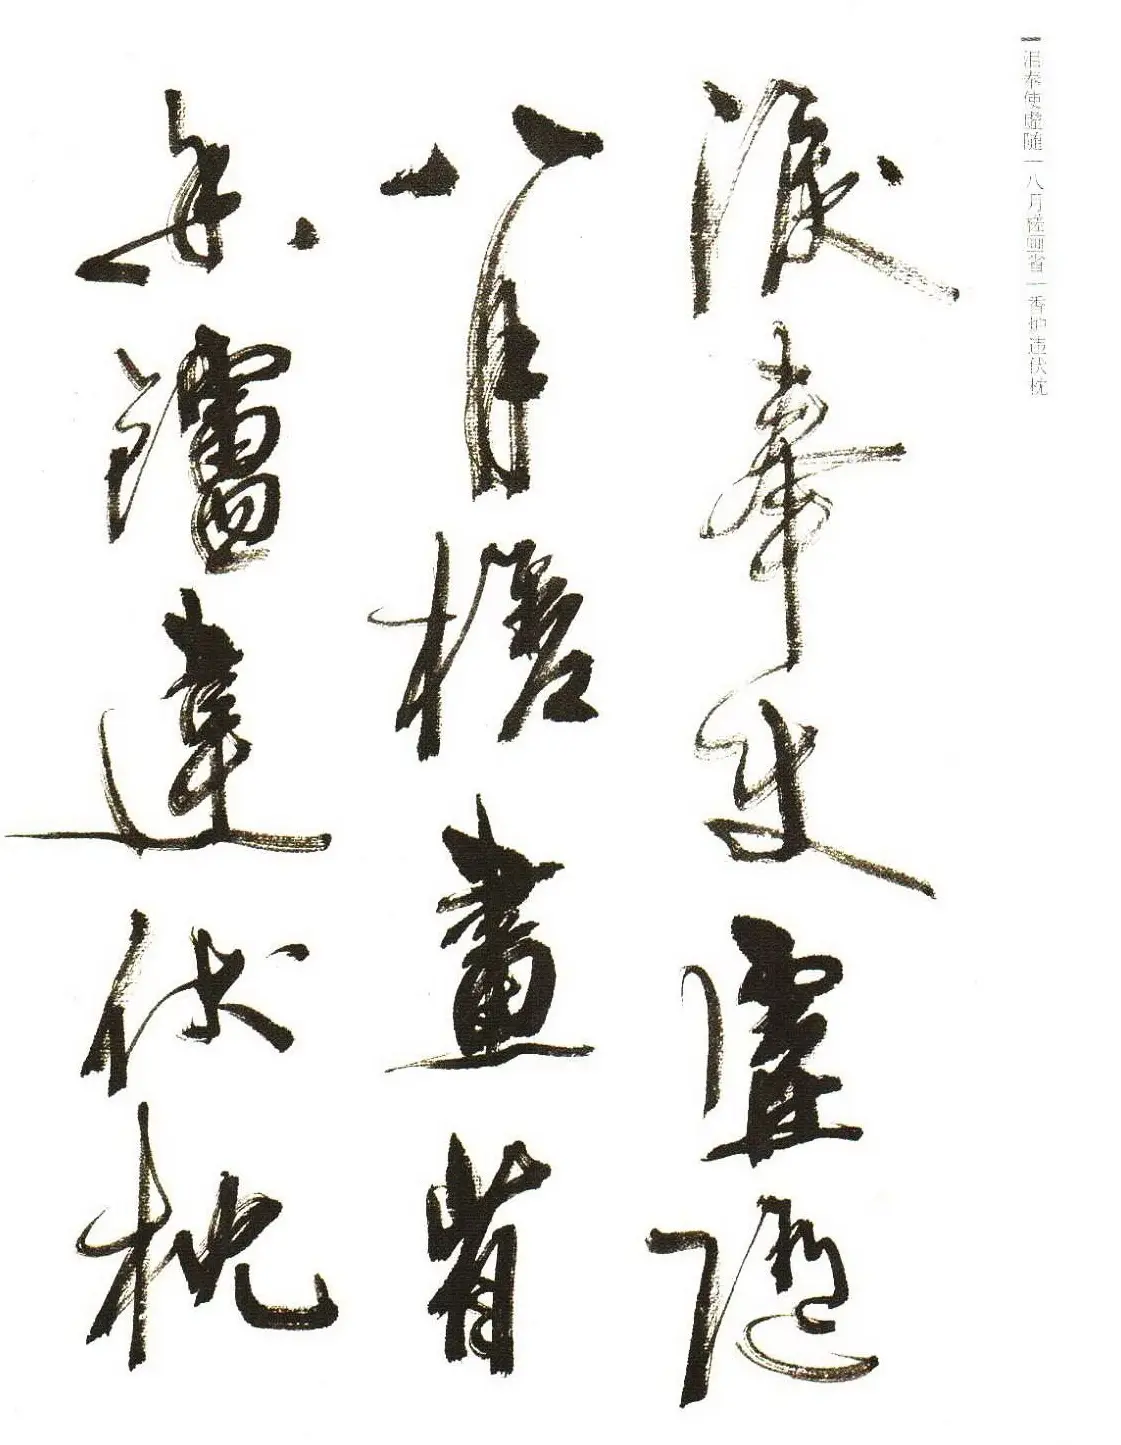 泪奉使虚随｜八月槎画省｜香炉违伏枕
淚奉使虛隨
八月槎畫省
香爐違伏枕